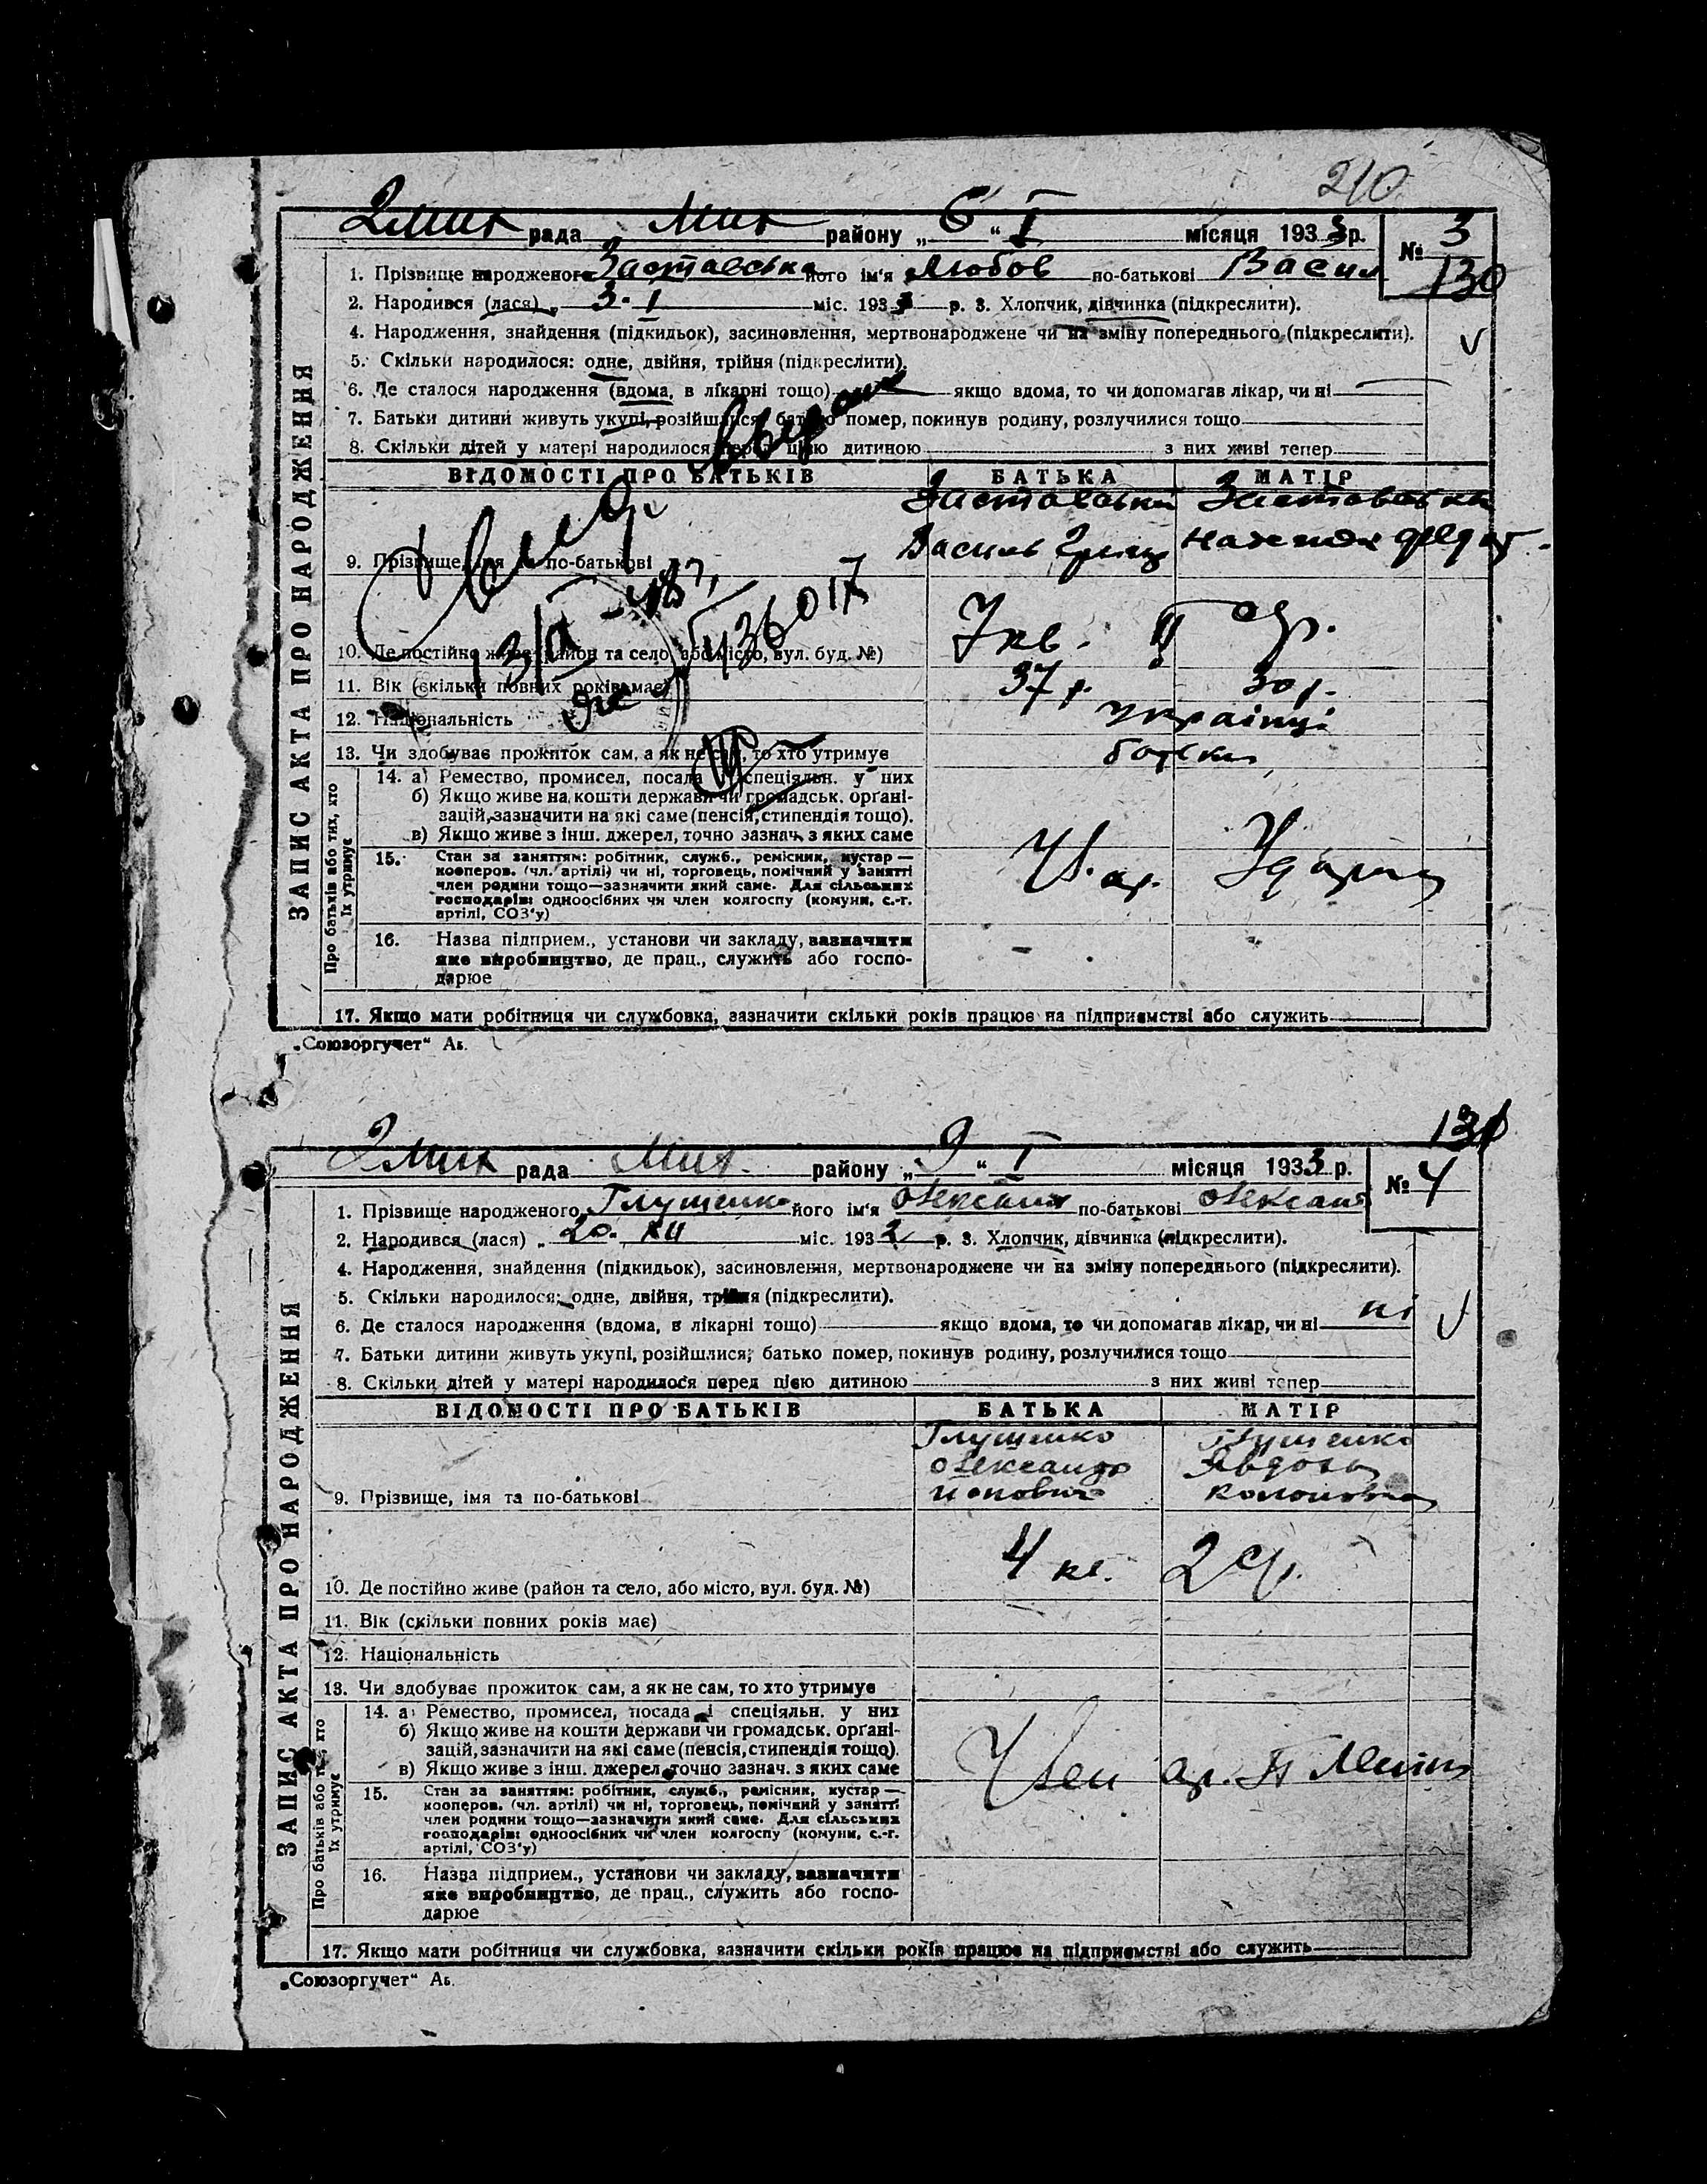 210
рада Мик району „6“ I місяця 1933р. № 3
130
1. Прізвище народженого Заставська його ім'я Любов по-батькові Васил
2. Народився (лася) „ 3. I міс. 1933 р. 3. Хлопчик, дівчинка (підкреслити).
4. Народження, знайдення (підкидьок), засиновлення, мертвонароджене чи на зміну попереднього (підкреслити).
5. Скільки народилося: одне, двійня, трійня (підкреслити).
6. Де сталося народження (вдома, в лікарні тощо) якщо вдома, то чи допомагав лікар, чи ні
7. Батьки дитини живуть укупі, розійшлися, батько помер, покинув родину, розлучилися тощо
8. Скільки дітей у матері народилося перед цією дитиною з них живі тепер
ЗАПИС АКТА ПРО НАРОДЖЕННЯ
ВІДОМОСТІ ПРО БАТЬКІВ БАТЬКА МАТІР
Заставський Заставська
9. Прізвище, імя та по-батькові Василь Надежда
10. Де постійно живе (район та село, або місто, вул. буд. №) 7 кв.
11. Вік (скільки повних років має) 37 р. 30 р.
12. Національність українці
13. Чи здобуває прожиток сам, а як не сам, то хто утримує батьки
Про батьків або тих, хто їх утримує
14. а) Ремество, промисел, посада і спеціяльн. у них
б) Якщо живе на кошти держави чи громадськ. орґані-
зацій, зазначити на які саме (пенсія, стипендія тощо).
в) Якщо живе з інш. джерел, точно зазнач. з яких саме
15. Стан за заняттям: робітник, служб., ремісник, кустар —
кооперов. (чл. артілі) чи ні, торговець, помічний у занятті
член родини тощо—зазначити який саме. Для сільських
господарів: одноосібних чи член колгоспу (комуни, с.-г.
артілі, СОЗ'у)
16. Назва підприєм., установи чи закладу, зазначити
яке виробництво, де прац., служить або госпо-
дарює
17. Якщо мати робітниця чи службовка, зазначити скільки років працює на підприємстві або служить
„Союзоргучет“ Аь.
131
рада Мик. району „9“ I місяця 1933 р. № 4
1. Прізвище народженого Глущенко його ім'я Олександ по-батькові Олександ
2. Народився (лася) „ 20. XII міс. 1932 р. 3. Хлопчик, дівчинка (підкреслити).
4. Народження, знайдення (підкидьок), засиновлення, мертвонароджене чи на зміну попереднього (підкреслити).
5. Скільки народилося: одне, двійня, трійня (підкреслити).
6. Де сталося народження (вдома, в лікарні тощо) якщо вдома, то чи допомагав лікар, чи ні ні
7. Батьки дитини живуть укупі, розійшлися, батько помер, покинув родину, розлучилися тощо
8. Скільки дітей у матері народилося перед цією дитиною з них живі тепер
ЗАПИС АКТА ПРО НАРОДЖЕННЯ
ВІДОМОСТІ ПРО БАТЬКІВ БАТЬКА МАТІР
Глущенко Глущенко
Олександр Явдоха
9. Прізвище, імя та по-батькові
10. Де постійно живе (район та село, або місто, вул. буд. №) 4 кв. 2
11. Вік (скільки повних років має)
12. Національність
13. Чи здобуває прожиток сам, а як не сам, то хто утримує
Про батьків або тих, хто їх утримує
14. а) Ремество, промисел, посада і спеціяльн. у них
б) Якщо живе на кошти держави чи громадськ. орґані-
зацій, зазначити на які саме (пенсія, стипендія тощо).
в) Якщо живе з інш. джерел, точно зазнач. з яких саме
Член ар.
15. Стан за заняттям: робітник, служб., ремісник, кустар —
кооперов. (чл. артілі) чи ні, торговець, помічний у занятті
член родини тощо—зазначити який саме. Для сільських
господарів: одноосібних чи член колгоспу (комуни, с.-г.
артілі, СОЗ'у)
16. Назва підприєм., установи чи закладу, зазначити
яке виробництво, де прац., служить або госпо-
дарює
17. Якщо мати робітниця чи службовка, зазначити скільки років працює на підприємстві або служить
„Союзоргучет“ Аь.